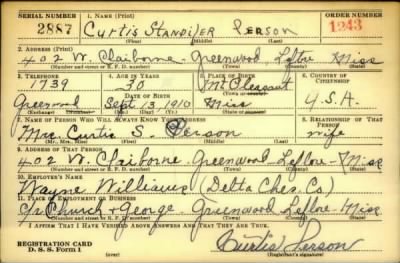 SERIAL NUMBER 1. NAME (Print) ORDER NUMBER
2887 CURTIS STANDIFER PERSON 1243
(First) (Middle) (Last)
2. ADDRESS (Print)
402 W. Claiborne Greenwood Leflre Miss
(Number and street or R. F. D. number) (Town) (County) (State)
3. TELEPHONE 4. AGE IN YEARS 5. PLACE OF BIRTH 6. COUNTRY OF CITIZENSHIP
1739 30 Mt Pleasant
DATE OF BIRTH
Greenwood Sept 13 1910 Miss U.S.A.
(Exchange) (Number) (Mo.) (Day) (Yr.) (State or country)
7. NAME OF PERSON WHO WILL ALWAYS KNOW YOUR ADDRESS 8. RELATIONSHIP OF THAT PERSON
Mrs. Curtis S. Person wife
(Mr., Mrs., Miss) (First) (Middle) (Last)
9. ADDRESS OF THAT PERSON
402 W. Claiborne Greenwood Leflore - Miss
(Number and street or R. F. D. number) (Town) (County) (State)
10. EMPLOYER'S NAME
Wayne Williams (Delta Ches. Co)
11. PLACE OF EMPLOYMENT OR BUSINESS
Church & George Greenwood Leflore - Miss
(Number and street or R. F. D. number) (Town) (County) (State)
I AFFIRM THAT I HAVE VERIFIED ABOVE ANSWERS AND THAT THEY ARE TRUE.
REGISTRATION CARD
D. S. S. Form 1 (over) Curtis Person
(Registrant's signature)